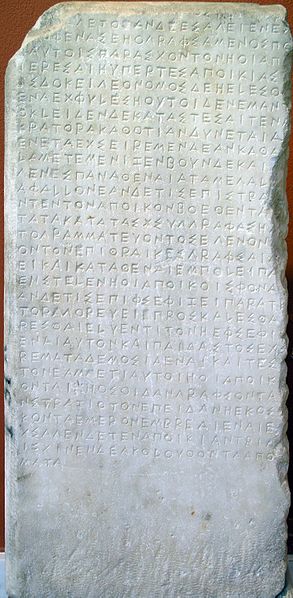 ΓΕΤΟΕΑΝΔΕΕΣΑΓΕΙΕΝΕ
ΗΟΦΕΝΑΣΕΗΟΓΡΑΦΣΑΜΕΝΟΣΠΟ
ΑΥΤΟΙΣΠΑΡΑΣΧΟΝΤΟΝΗΟΙΑΠ
ΙΕΡΕΣΑΙΗΥΠΕΡΤΕΣΑΠΟΙΚΙΑΣ
ΙΣΔΟΚΕΙΓΕΟΝΟΜΟΣΔΕΗΕΛΕΣΘ
ΕΝΑΕΧΦΥΛΕΣΗΟΥΤΟΙΔΕΝΕΜΑΝ
ΟΚΛΕΙΔΕΝΔΕΚΑΤΑΣΤΕΣΑΙΤΕΝ
ΚΡΑΤΟΡΑΚΑΘΟΤΙΑΝΔΥΝΕΤΑΙΑ
ΕΝΕΤΑΕΧΣΕΙΡΕΜΕΝΑΕΑΝΚΑΘΑ
ΛΑΜΕΤΕΜΕΝΙΖΕΝΒΟΥΝΔΕΚΑ
ΕΝΕΣΠΑΝΑΘΕΝΑΙΑΤΑΜΕΓΑΛ
ΑΦΑΛΛΟΝΕΑΝΔΕΤΙΣΕΠΙΣΤΡ
ΝΤΕΝΤΟΝΑΠΟΙΚΟΝΒΟΕΘΕΝΤ
ΤΑΤΑΚΑΤΑΤΑΣΧΣΥΓΓΡΑΦΑΣΗ
ΤΟΓΡΑΜΜΑΤΕΥΟΝΤΟΣΕΓΕΝΟΝ
ΟΝΤΟΝΕΠΙΘΡΑΙΚΕΣΓΡΑΦΣΑΙ
ΕΙΚΑΙΚΑΤΑΘΕΝΑΙΕΜΠΟΛΕΙΠΑ
ΕΝΣΤΕΛΕΝΗΟΙΑΠΟΙΚΟΙΣΦΟΝ
ΑΝΔΕΤΙΣΕΠΙΦΣΕΦΙΖΕΙΠΑΡΑΤΕ
ΤΟΡΑΓΟΡΕΥΕΙΕΠΡΟΣΚΑΛΕΣΘΑ
ΡΕΣΘΑΙΕΛΥΕΝΤΙΤΟΝΗΕΦΣΕΦ
ΕΝΑΙΑΥΤΟΝΚΑΙΠΑΙΔΑΣΤΟΣΕΧΣ
ΡΕΜΑΤΑΔΕΜΟΣΙΑΕΝΑΙΚΑΙΤΕΣ
ΤΟΝΕΑΜΕΤΙΑΥΤΟΙΗΟΙΑΠΟΙΚ
ΟΝΤΑΙΗΟΣΟΙΔΑΝΓΡΑΦΣΟΝΤΑ
ΝΣΤΡΑΤΙΟΤΟΝΕΠΕΙΔΑΝΗΕΚΟΣ
ΚΟΝΤΑΕΜΕΡΟΝΕΜΒΡΕΑΙΕΝΑΙΕ
ΕΣΑΓΕΝΔΕΤΕΝΑΠΟΙΚΙΑΝΤΡΙΑ
ΙΣΧΙΝΕΝΔΕΑΚΟΛΟΥΘΟΝΤΑΑΠΟ
ΜΑΤΑ